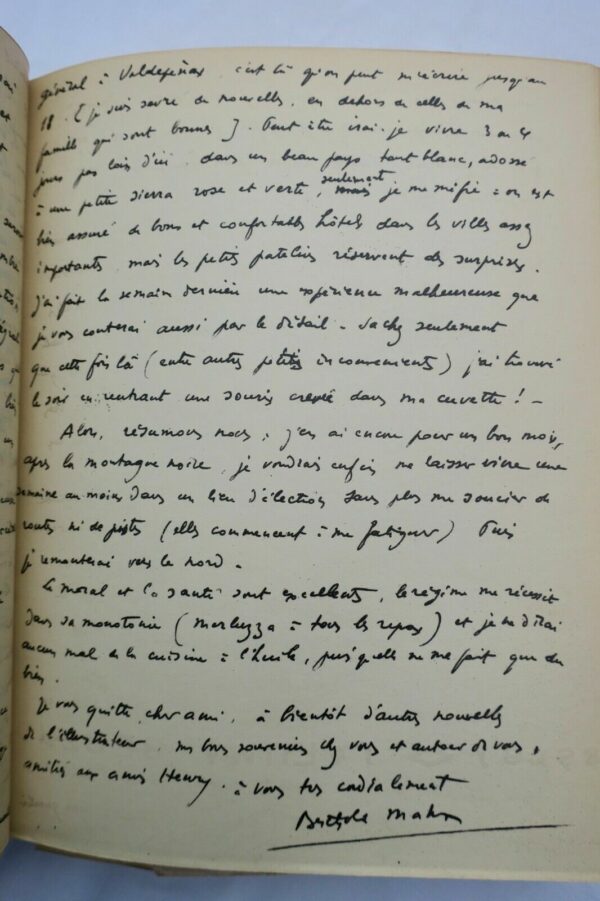 général à Valdepeñas, c'est là qu'on peut m'écrire jusqu'au
18. [je suis sevré de nouvelles, en dehors de celles de ma
famille qui sont bonnes]. Peut être irai-je vivre 3 ou 4
jours pas loin d'ici, dans un beau pays tout blanc, adossé
à une petite sierra rose et verte, seulement mais je me méfie : on est
bien assuré de bons et confortables hôtels dans les villes assez
importantes, mais les petits patelins réservent des surprises.
J'ai fait la semaine dernière une expérience malheureuse que
je vous conterai aussi par le détail. Sachez seulement
que cette fois là (entre autres petits inconvenients) j'ai trouvé
le soir en rentrant une souris crevée dans ma cuvette ! -
Alors, résumons nous : j'en ai encore pour un bon mois,
après la montagne noire, je voudrais enfin me laisser vivre une
semaine au moins dans un lieu d'élection sans plus me soucier de
routes ni de pistes (elles commencent à me fatiguer) Puis
je remonterai vers le nord.
Le moral et la santé sont excellents, le régime me réussit
dans sa monotonie (merluzza à tous les repas) et je ne dirai
aucun mal de la cuisine à l'huile, puisqu'elle ne me fait que du
bien.
Je vous quitte, cher ami, à bientôt d'autres nouvelles
de l'illustrateur, mes bons souvenirs chez vous et autour de vous,
amitiés aux amis Henry. à vous très cordialement
Berthold Mahn